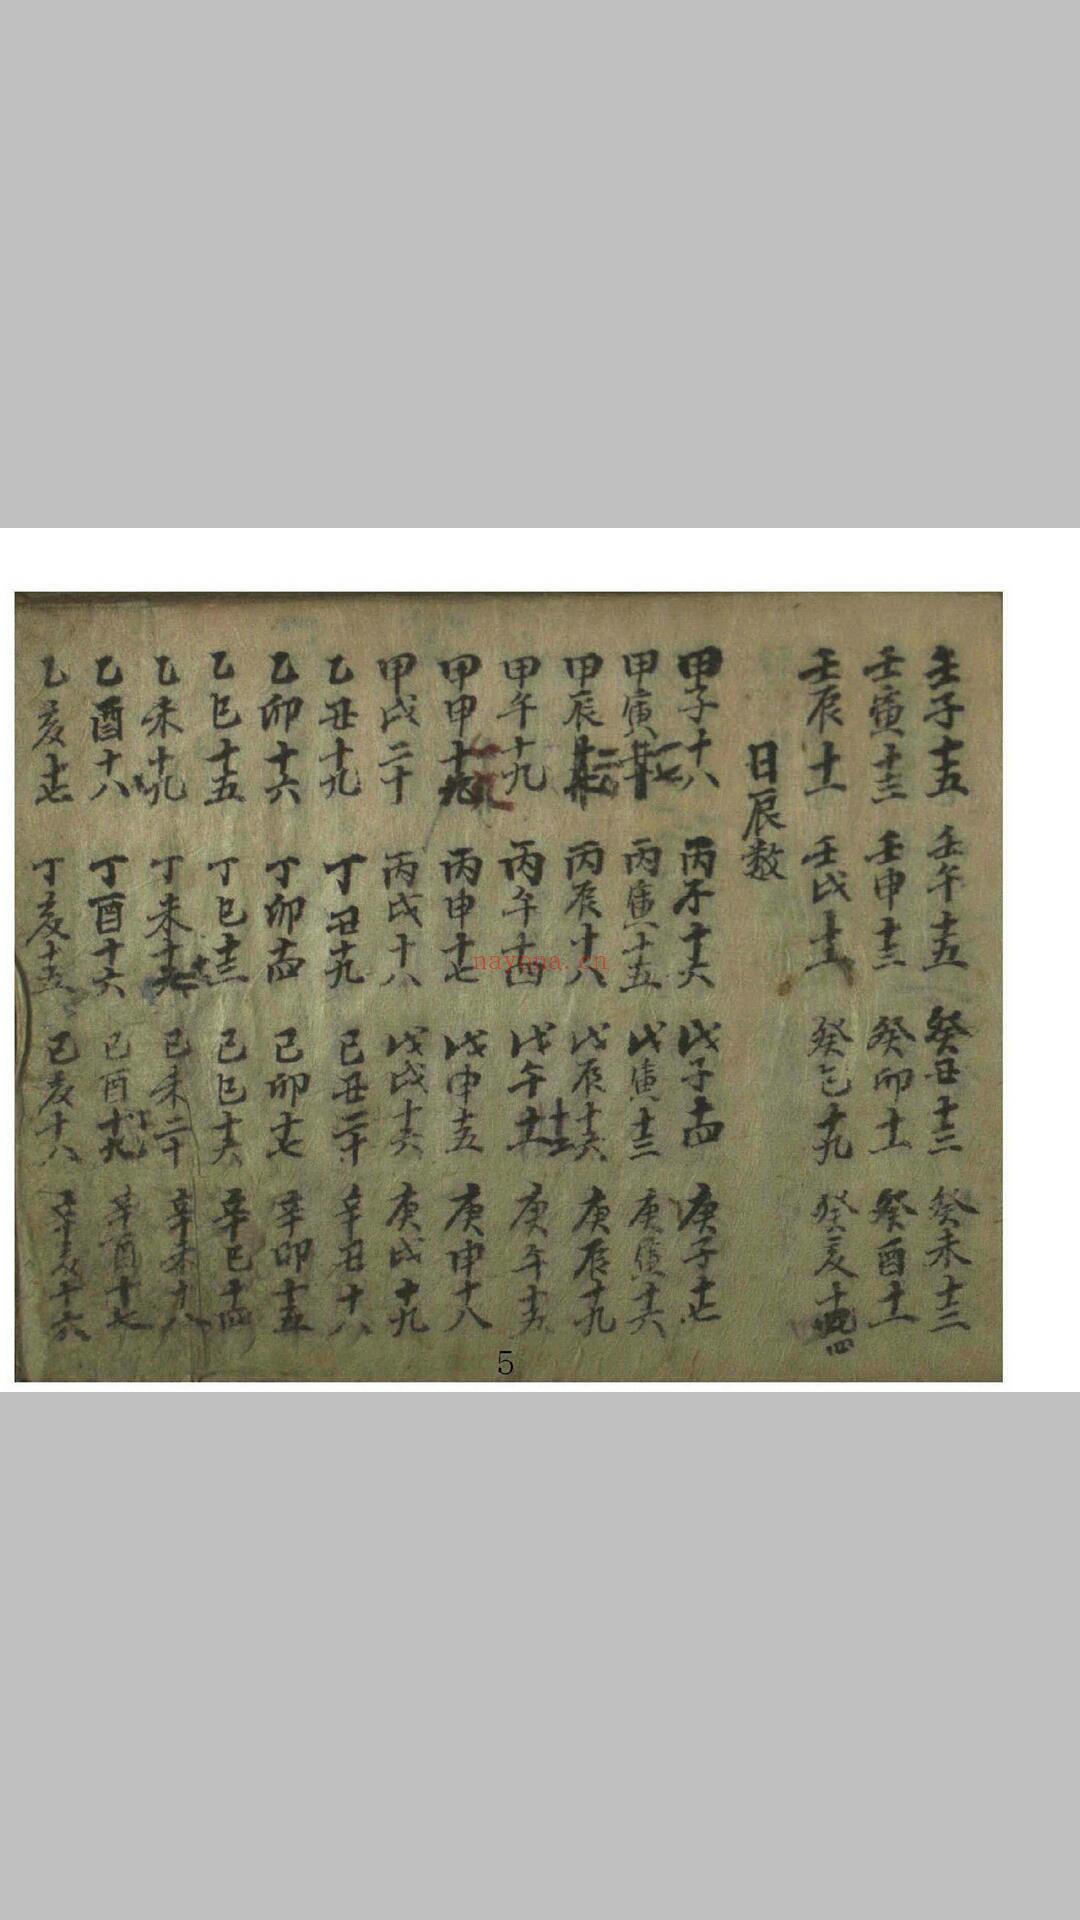 壬子十五 壬午十五 癸丑十三 癸未十三
壬寅十三 壬申十三 癸卯十一 癸酉十一
壬辰十一 壬戌十 癸巳十九 癸亥十四
日辰数
甲子十八 丙子十六 戊子十四 庚子十七
甲寅十七 丙寅十五 戊寅十三 庚寅十六
甲辰 丙辰十八 戊辰十六 庚辰十九
甲午十九 丙午十四 戊午十 庚午十五
甲申十九 丙申十七 戊申十五 庚申十八
甲戌二十 丙戌十八 戊戌十六 庚戌十九
乙丑十九 丁丑十九 己丑二十 辛丑十八
乙卯十六 丁卯十四 己卯十七 辛卯十五
乙巳十五 丁巳十三 己巳十六 辛巳十四
乙未十九 丁未十七 己未二十 辛未十八
乙酉十八 丁酉十六 己酉十九 辛酉十七
乙亥十七 丁亥十五 己亥十八 辛亥十六
nayona.cn
5